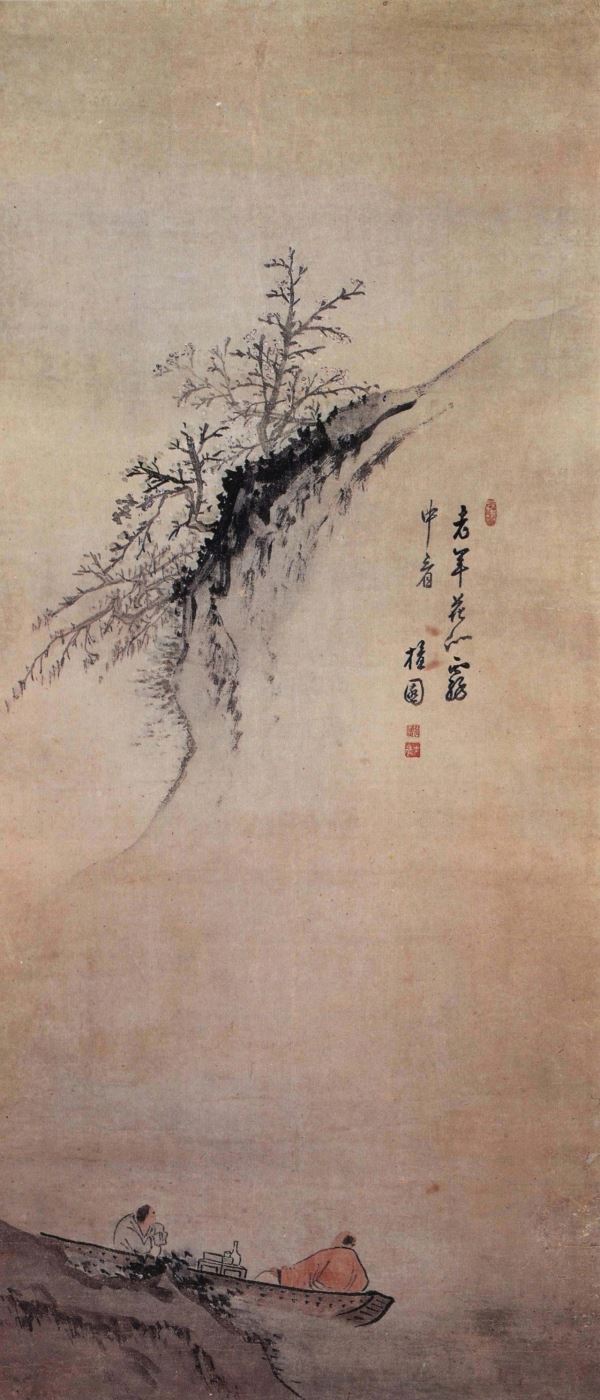 老年花似霧
中看
檀園